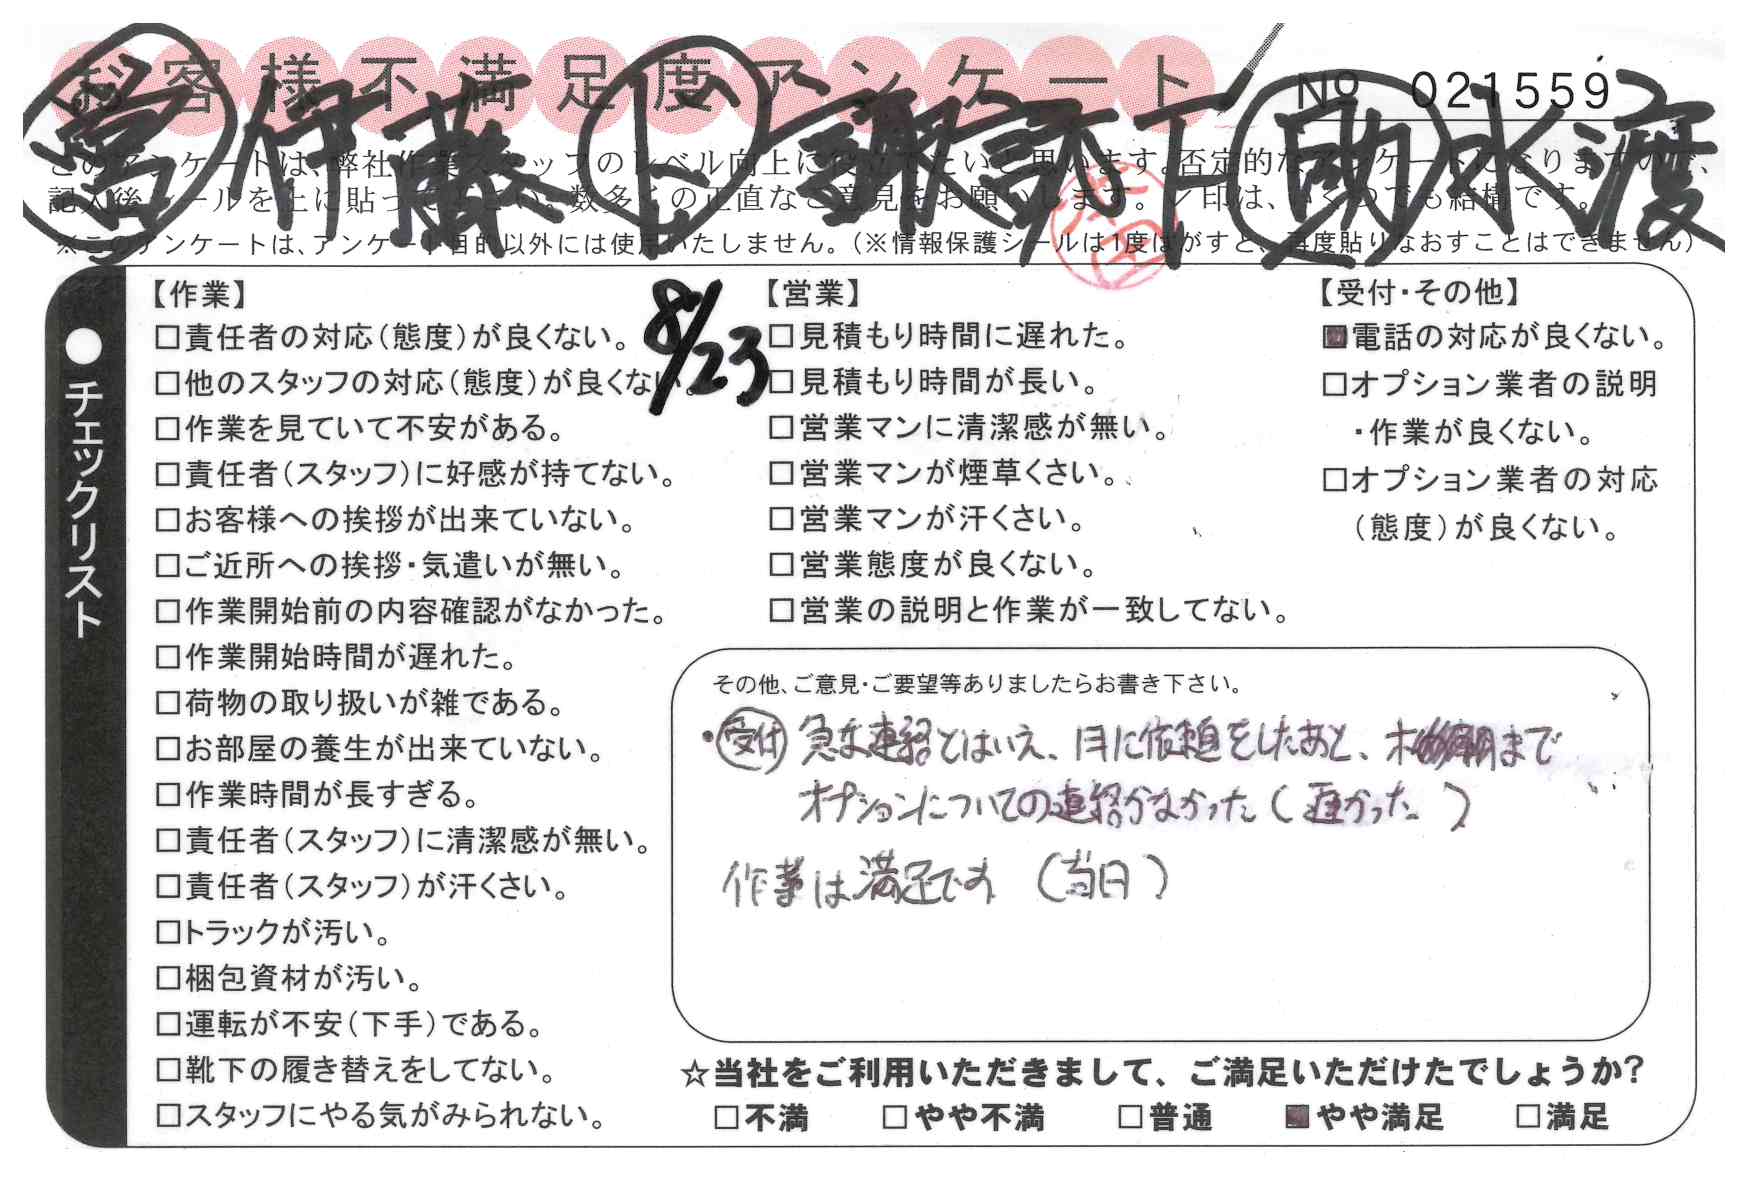 お客様不満足度アンケート
No 021559
営 伊藤 ト 諏訪下 助 水渡
このアンケートは、弊社作業スタッフのレベル向上に役立てたいと思います。否定的なアンケートになりますので、
記入後シールを上に貼って下さい。数多くの正直なご意見をお願いします。✓印は、いくつでも結構です。
※このアンケートは、アンケート目的以外には使用いたしません。(※情報保護シールは1度はがすと、再度貼りなおすことはできません)
8/23
●チェックリスト
【作業】
□責任者の対応(態度)が良くない。
□他のスタッフの対応(態度)が良くない。
□作業を見ていて不安がある。
□責任者(スタッフ)に好感が持てない。
□お客様への挨拶が出来ていない。
□ご近所への挨拶・気遣いが無い。
□作業開始前の内容確認がなかった。
□作業開始時間が遅れた。
□荷物の取り扱いが雑である。
□お部屋の養生が出来ていない。
□作業時間が長すぎる。
□責任者(スタッフ)に清潔感が無い。
□責任者(スタッフ)が汗くさい。
□トラックが汚い。
□梱包資材が汚い。
□運転が不安(下手)である。
□靴下の履き替えをしてない。
□スタッフにやる気がみられない。
【営業】
□見積もり時間に遅れた。
□見積もり時間が長い。
□営業マンに清潔感が無い。
□営業マンが煙草くさい。
□営業マンが汗くさい。
□営業態度が良くない。
□営業の説明と作業が一致してない。
【受付・その他】
■電話の対応が良くない。
□オプション業者の説明
・作業が良くない。
□オプション業者の対応
(態度)が良くない。
その他、ご意見・ご要望等ありましたらお書き下さい。
・受付 急な連絡とはいえ、月に依頼をしたあと、木 朝まで
オプションについての連絡がなかった(遅かった)
作業は満足です(当日)
☆当社をご利用いただきまして、ご満足いただけたでしょうか?
□不満 □やや不満 □普通 ■やや満足 □満足